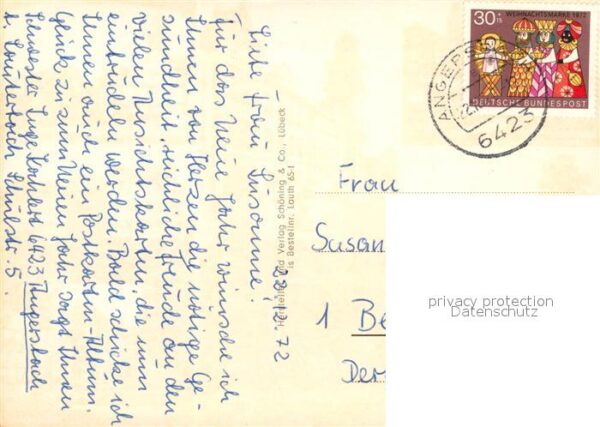 28.12.72
Liebe Frau Susanne!
Für das Neue Jahr wünsche ich
Ihnen von Herzen die nötige Ge-
sundheit, reichliche Freude an den
vielen Ansichtskarten, die nun
eintrudeln werden. Bald schicke ich
Ihnen auch ein Postkarten-Album.
Glück zum Neuen Jahr sagt Ihnen
Schwester Inge 6423 Angersbach
b. Lauterbach Schulstr. 5.
Herstellung und Verlag Schöning & Co., Lübeck
Bestellnr. Lauth 65-1
30+15
WEIHNACHTSMARKE 1972
DEUTSCHE BUNDESPOST
ANGERS
6423
Frau
Susan
1 Be
Der
privacy protection
Datenschutz